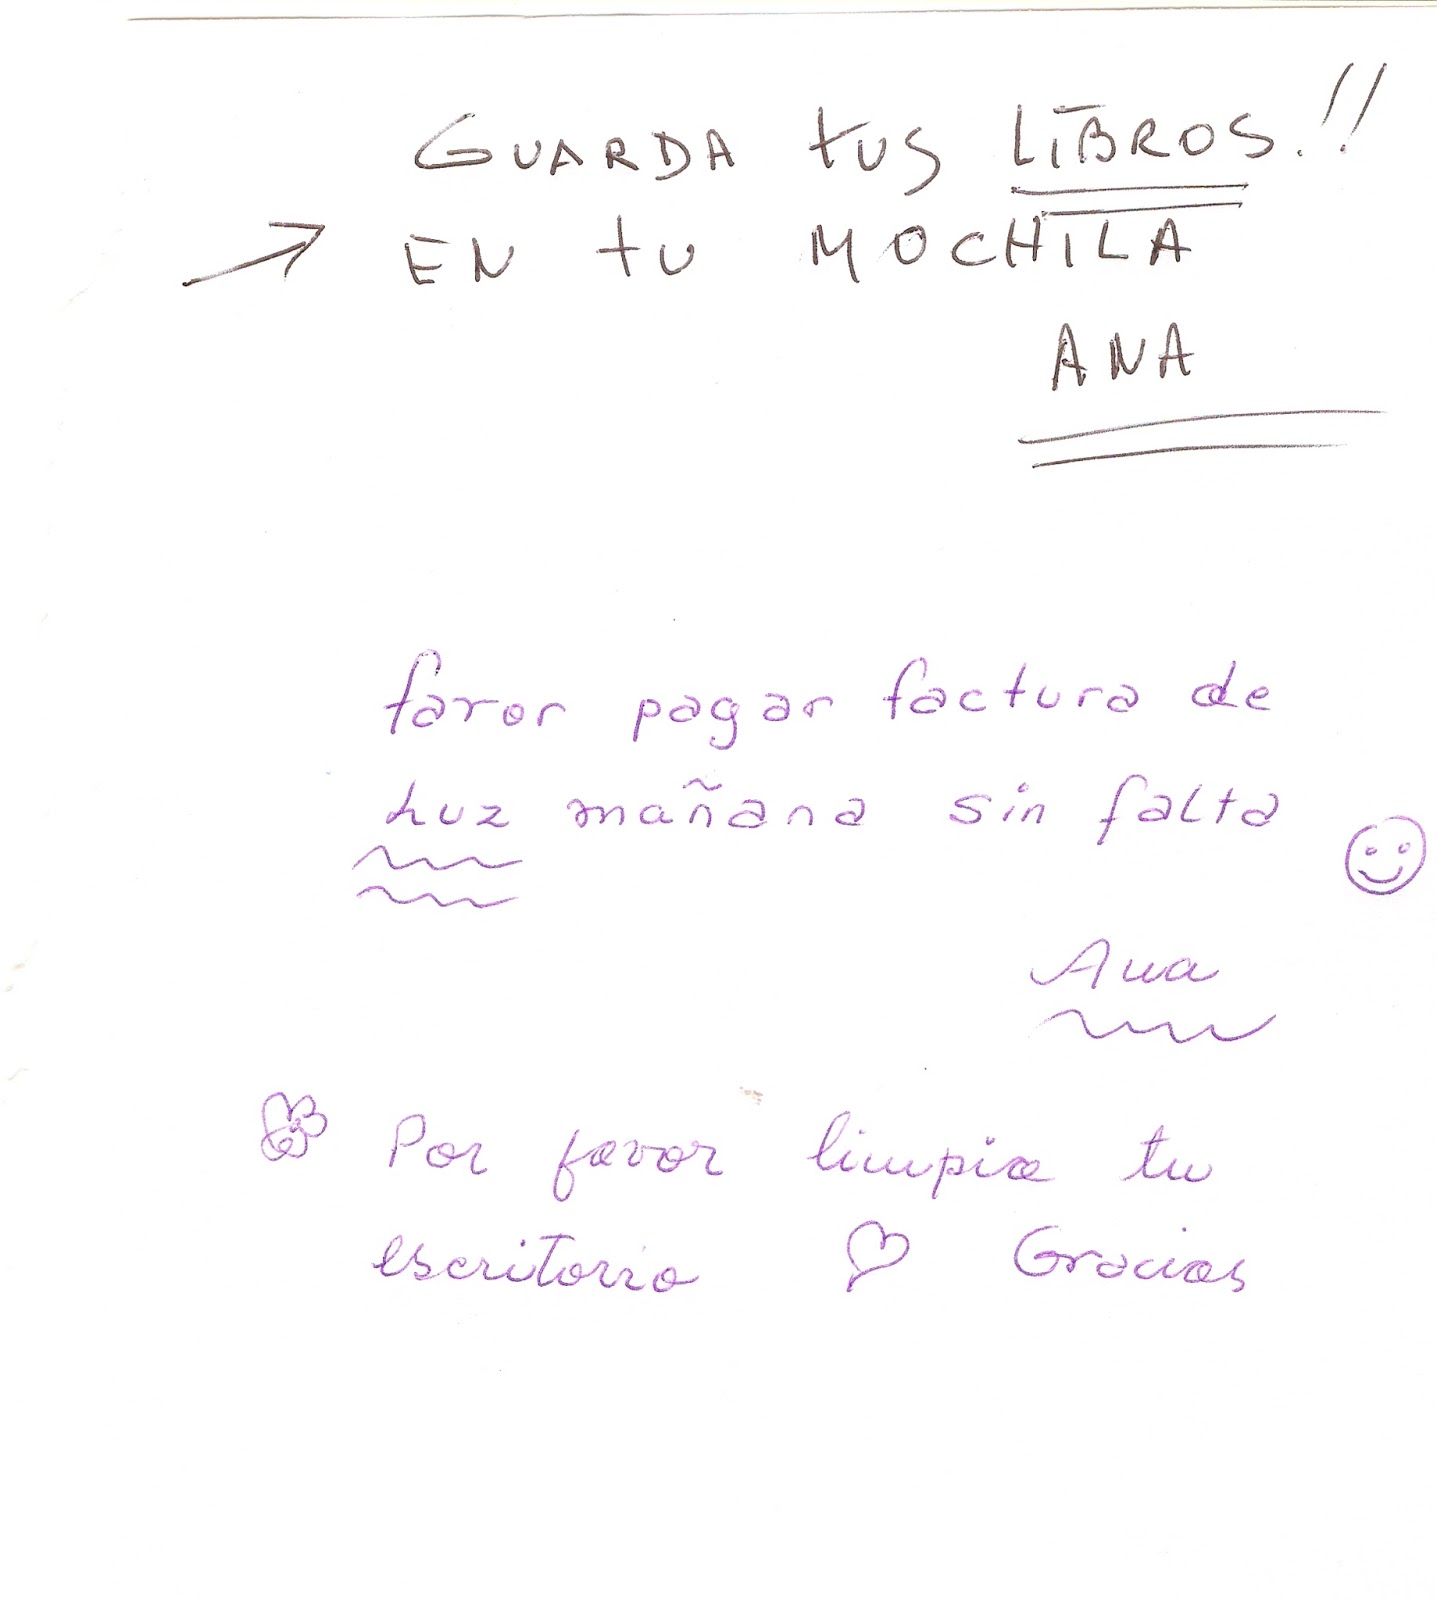 GUARDA tus LIBROS.!!
EN tu MOCHILA
ANA
favor pagar factura de
luz mañana sin falta
Ana
Por favor limpia tu
escritorio Gracias